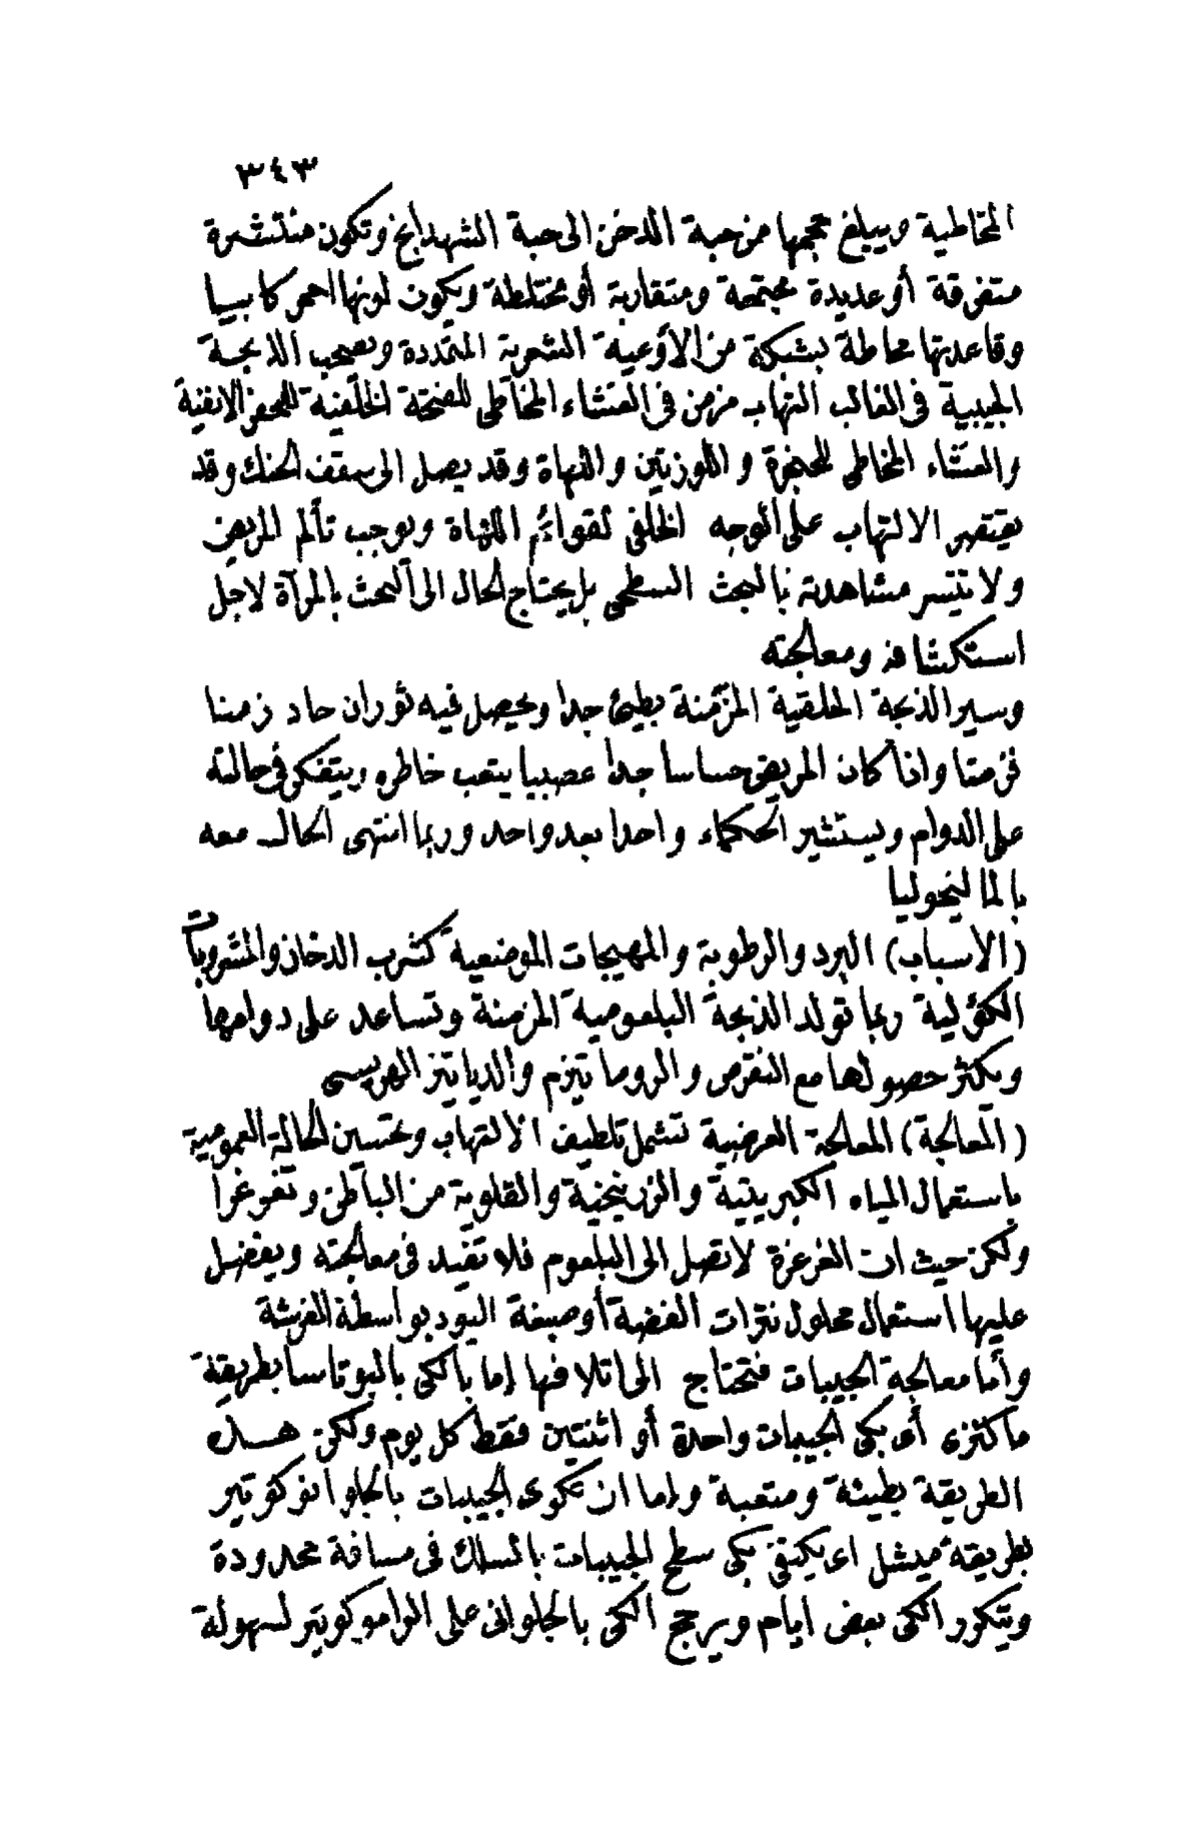 ٣٤٣
المخاطية ويبلغ حجمها من حبة الدخن الى حبة الشهدانج وتكون منتشرة
متفرقة أو عديدة مجتمعة ومتقاربة أو مختلطة ويكون لونها احمر كابيا
وقاعدتها محاطة بشبكة من الأوعية الشعرية المتمددة ويصحب الذبحة
الجيبية فى الغالب التهاب مزمن فى الغشاء المخاطى للفتحة الخلفية للحفر الانفية
والغشاء المخاطى للحنجرة واللوزتين واللهاة وقد يصل الى سقف الحنك وقد
يقتصر الالتهاب على الوجه الخلفى لقوائم اللهاة ويوجب تألم المريض
ولا تتيسر مشاهدته بالبحث السطحى بل يحتاج الحال الى البحث بالمرآة لاجل
استكشافه ومعالجته
وسير الذبحة الحلقية المزمنة بطئ جدا ويحصل فيه ثوران حاد زمنا
فزمنا واذا كان المريض حساسا جدا عصبيا يتعب خاطره ويتفكر فى حالته
على الدوام ويستشير الحكماء واحدا بعد واحد وربما انتهى الحال معه
بالمالنيخوليا
(الاسباب) البرد والرطوبة والمهيجات الموضعية كشرب الدخان والمشروبات
الكؤلية ربما تولد الذبحة البلعومية المزمنة وتساعد على دوامها
ويكثر حصولها مع النقرص والروماتيزم والديابتز الهربسى
(المعالجة) المعالجة العرضية تشمل تلطيف الالتهاب وتحسين الحالة العمومية
باستعمال المياه الكبريتية والزرنيخية والقلوية من الباطن وتغرغرا
ولكن حيث ان الغرغرة لا تصل الى البلعوم فلا تفيد فى معالجته ويفضل
عليها استعمال محلول نترات الفضة أو صبغة اليود بواسطة الفرشة
وأما معالجة الجيبات فتحتاج الى اتلافها إما بالكى بالبوتاسا بطريقة
ماكنزى أى بكى الجيبات واحدة أو اثنتين فقط كل يوم ولكن هذه
الطريقة بطيئة ومتعبة واما ان تكوى الجيبات بالجلوانوكوتير
بطريقة ميشل اى يكتفى بكى سطح الجيبات بالسلك فى مسافة محدودة
ويتكرر الكى بعض ايام ويرجح الكى بالجلوانى على الترموكوتير لسهولة